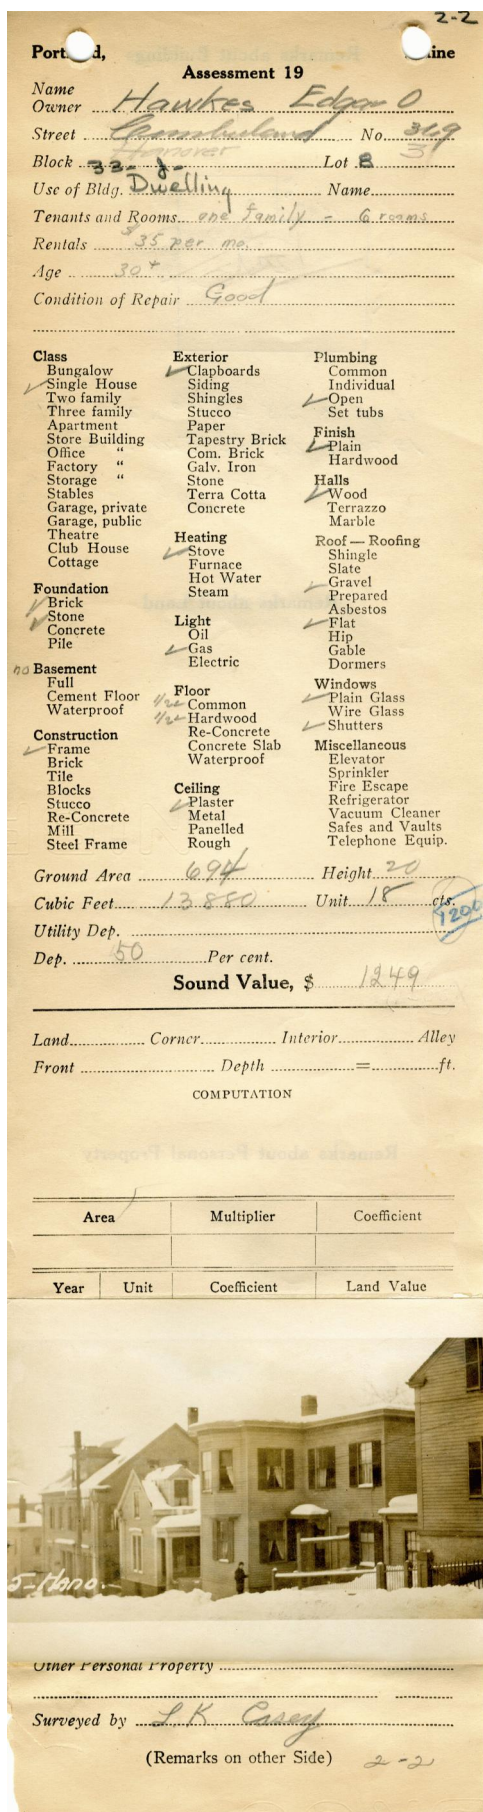 2-2
Portland, Maine
Assessment 19
Name
Owner Hawkes Edgar O
Street Cumberland No. 369
Hanover 5
Block 33-J- Lot 8
Use of Bldg. Dwelling Name
Tenants and Rooms one family - 6 rooms
Rentals $35 per mo.
Age 30+
Condition of Repair Good
Class
Bungalow
✓ Single House
Two family
Three family
Apartment
Store Building
Office "
Factory "
Storage "
Stables
Garage, private
Garage, public
Theatre
Club House
Cottage
Foundation
✓ Brick
✓ Stone
Concrete
Pile
no Basement
Full
Cement Floor
Waterproof
Construction
✓ Frame
Brick
Tile
Blocks
Stucco
Re-Concrete
Mill
Steel Frame
Exterior
✓ Clapboards
Siding
Shingles
Stucco
Paper
Tapestry Brick
Com. Brick
Galv. Iron
Stone
Terra Cotta
Concrete
Heating
✓ Stove
Furnace
Hot Water
Steam
Light
Oil
✓ Gas
Electric
Floor
1/2 ✓ Common
1/2 ✓ Hardwood
Re-Concrete
Concrete Slab
Waterproof
Ceiling
✓ Plaster
Metal
Panelled
Rough
Plumbing
Common
Individual
✓ Open
Set tubs
Finish
✓ Plain
Hardwood
Halls
✓ Wood
Terrazzo
Marble
Roof — Roofing
Shingle
Slate
✓ Gravel
Prepared
Asbestos
✓ Flat
Hip
Gable
Dormers
Windows
✓ Plain Glass
Wire Glass
✓ Shutters
Miscellaneous
Elevator
Sprinkler
Fire Escape
Refrigerator
Vacuum Cleaner
Safes and Vaults
Telephone Equip.
Ground Area 694 Height 20
Cubic Feet 13880 Unit 18 cts.
1200
Utility Dep.
Dep. 50 Per cent.
Sound Value, $ 1249
Land Corner Interior Alley
Front Depth = ft.
COMPUTATION
Area Multiplier Coefficient
Year Unit Coefficient Land Value
5-Hano.
Other Personal Property
Surveyed by L.K. Casey
(Remarks on other Side) 2-2